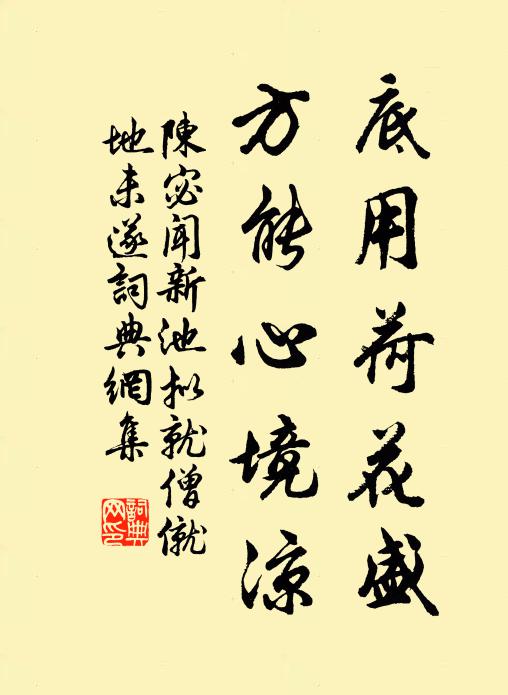 底用荷花盛
方能心境凉
陳宓聞新池拟就僧僦
地未遂詞典網集
詞典网印